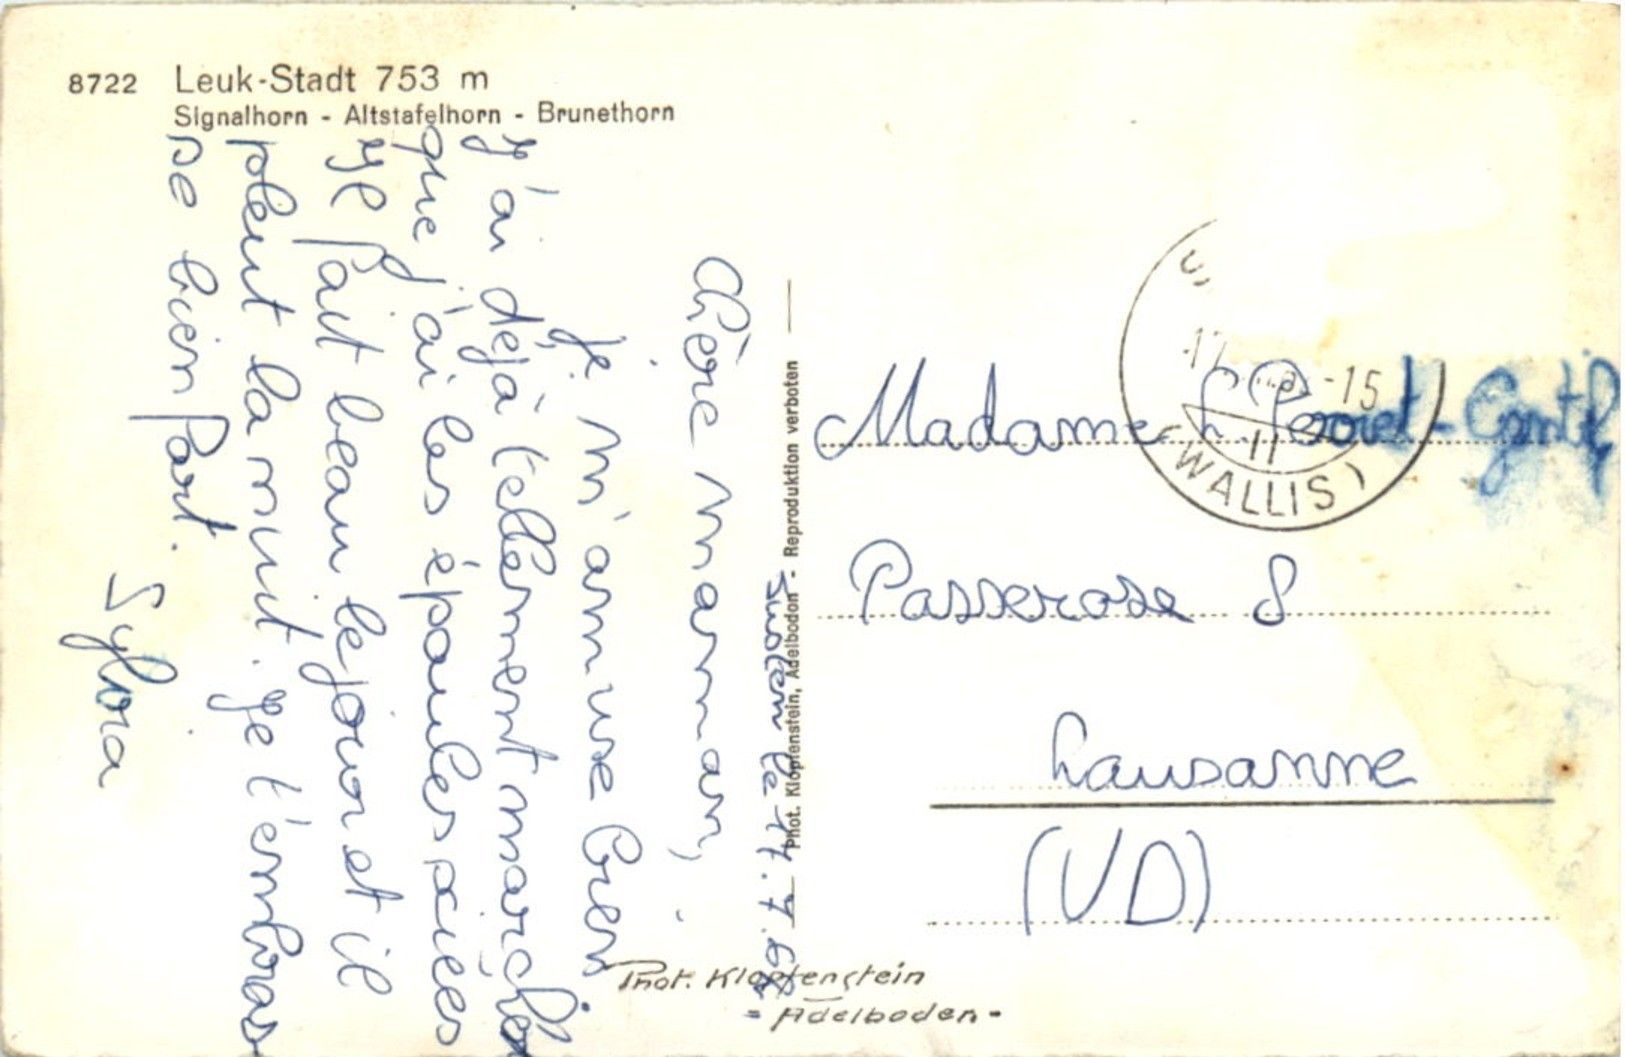 8722 Leuk-Stadt 753 m
Signalhorn - Altstafelhorn - Brunethorn
le 17.7.68
Chère maman,
Je m'amuse bien
J'ai déjà tellement marché
que j'ai les épaules sciées
Il fait beau le jour et il
pleut la nuit. Je t'embras
se bien fort.
Sylvia
Phot. Klopfenstein, Adelboden - Reproduktion verboten
-15
II
(WALLIS)
Madame Perret-Gentil
Passerose 8
Lausanne
(VD)
Phot. Klopfenstein
= Adelboden -